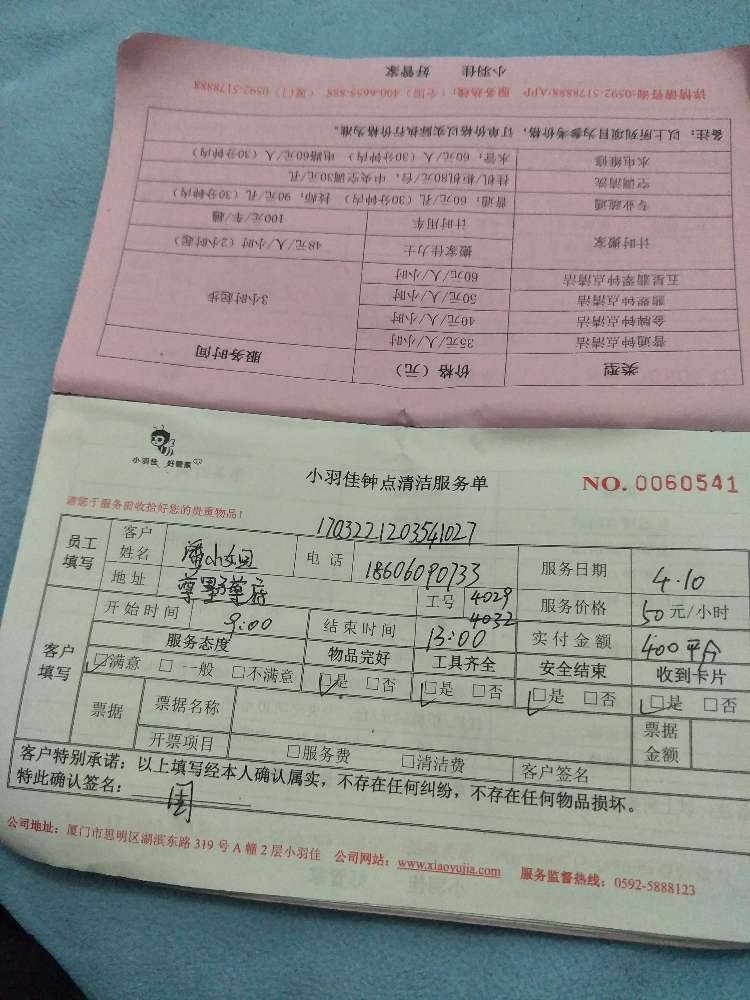 小羽佳 好管家
详情请咨询:0592-5178888/APP 服务热线:(全国)400-6655-888 (厦门)0592-5178888
备注:以上所列项目为参考价格,订单价格以实际执行价格为准。
水电维修 水管:60元/人(30分钟内) 电路60元/人(30分钟内)
空调清洗 挂机/柜机80元/台,中央空调30元/孔
专业疏通 普通:60元/孔(30分钟内) 技师:90元/孔(30分钟)
计时搬家 计时用车 100元/车/趟
搬家佳力士 48元/人/小时(2小时起)
五星翡翠钟点清洁 60元/人/小时
翡翠钟点清洁 50元/人/小时 3小时起步
金牌钟点清洁 40元/人/小时
普通钟点清洁 35元/人/小时
类型 价格(元) 服务时间
小羽佳 好管家
小羽佳钟点清洁服务单 NO. 0060541
请您于服务前收拾好您的贵重物品!
1703221203541027
员工填写 客户姓名 小姐 电话 18606090733 服务日期 4.10
地址 尊墅 府 工号 4029 4032 服务价格 50元/小时
客户填写 开始时间 9:00 结束时间 13:00 实付金额 400
服务态度 物品完好 工具齐全 安全结束 收到卡片
☑满意 □一般 □不满意 ☑是 □否 ☑是 □否 ☑是 □否 ☑是 □否
票据 票据名称 票据金额
开票项目 □服务费 □清洁费 客户签名
客户特别承诺:以上填写经本人确认属实,不存在任何纠纷,不存在任何物品损坏。
特此确认签名:
公司地址:厦门市思明区湖滨东路319号A幢2层小羽佳 公司网站:www.xiaoyujia.com 服务监督热线:0592-5888123